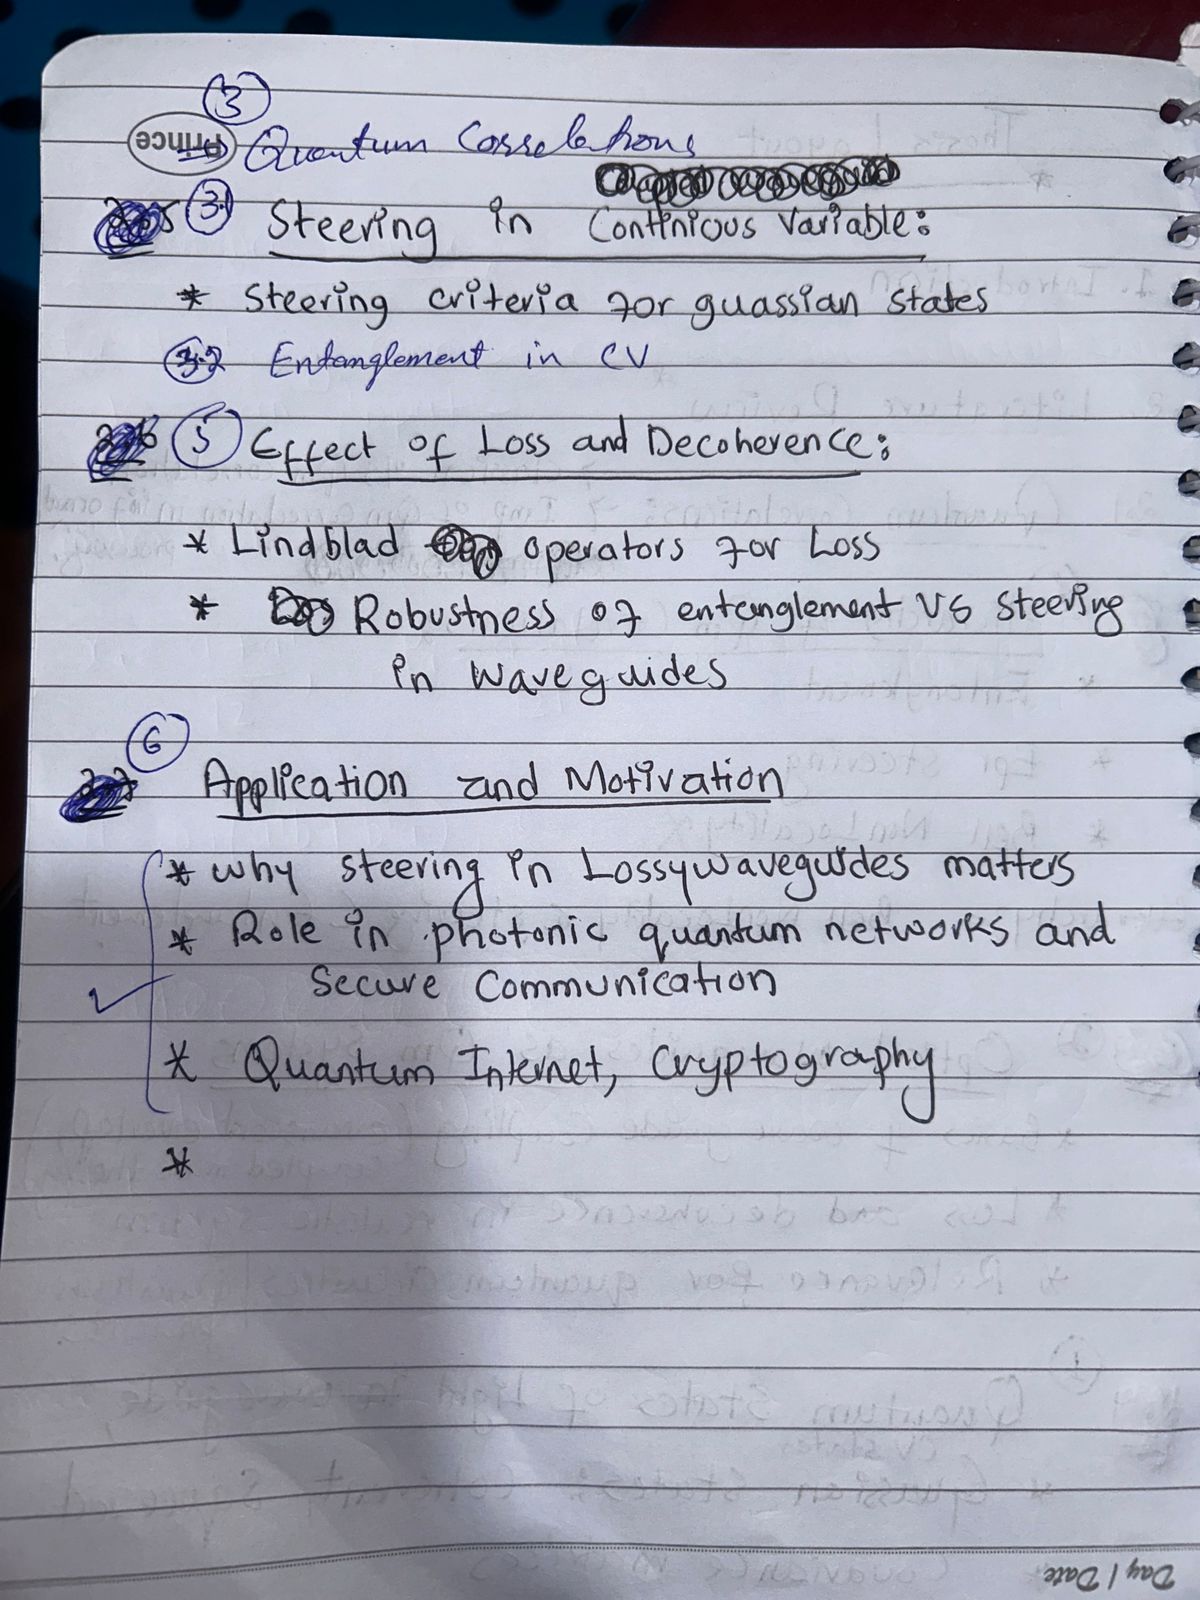 3
Prince
Quantum Correlations
3.1 Steering in Continious Variable:
* Steering criteria for guassian states
3.2 Entanglement in CV
5 Effect of Loss and Decoherence:
* Lindblad operators for Loss
* Robustness of entanglement VS steering
in waveguides
6
Application and Motivation
* why steering in Lossywaveguides matters
* Role in photonic quantum networks and
Secure Communication
* Quantum Internet, Cryptography
*
Day / Date